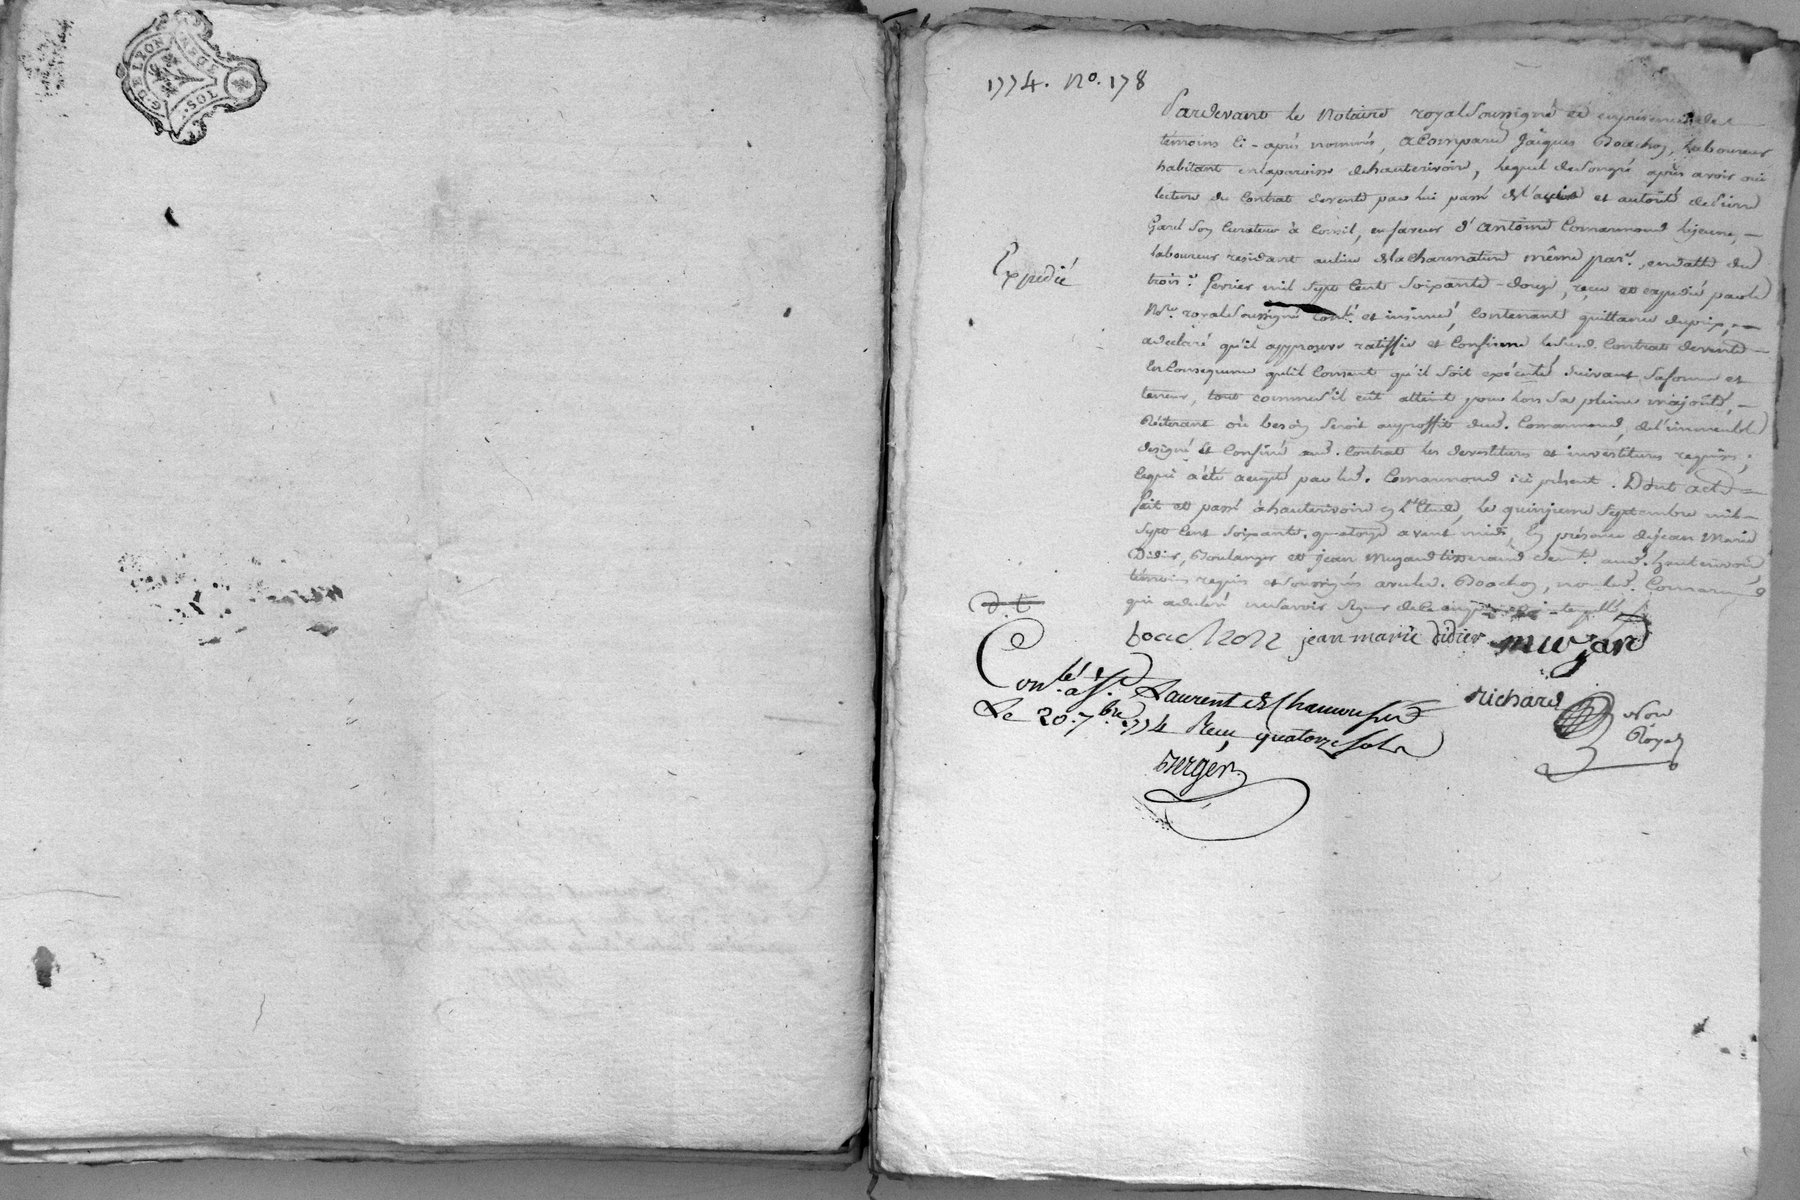 G. DE LYON
SOL
1774. No. 178
Pardevant le Notaire royal soussigné et en présence des
témoins ci-après nommés, a Comparu Jaiques Boachon, laboureur
habitant en la paroisse de hauterivoire, lequel de son gré après avoir oui
lecture du Contrat de vente par lui passé de l'avis et autorité de sieur
son Curateur à Conseil, en faveur d'antoine Comarmond le jeune,
laboureur residant au lieu de la Charmatine même par.e, en datte du
trois.e fevrier mil sept Cent Soixante-douze, reçu et expédié par le
Expedié
N.re royal soussigné Conlé. et insinué, Contenant quittance du prix,
a declaré qu'il approuve ratiffie et Confirme led. Contrat de vente
en Consequence qu'il Consent qu'il soit exécuté suivant sa forme et
teneur, tout comme s'il eût atteint pour lors sa pleine majorité,
Réiterant où besoin seroit au proffit dud. Comarmond, de l'immeuble
designé et Confiné aud. Contrat les devestitures et investitures requises;
Ce qui a été accepté par led. Comarmond ici présent. Dont acte
fait et passé à hauterivoire en l'Etude, le quinzieme Septembre mil
Sept Cent Soixante-quatorze avant midi, En présence de jean Marie
Didier, Boulanger et jean Muzard tisserand dem.t aud. hauterivoire,
témoins requis et soussignés avec led. Boachon, non led. Comarmond
qui a declaré ne savoir signer de ce enquis
boachon jean marie didier muzard
Con.lé à S.t Laurent de Chamousset
Le 20. 7.bre 1774 Recu quatorze sols
Berger
richard
Nore
Royal